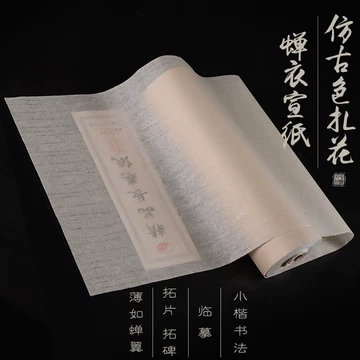 仿古色扎花
蝉衣宣纸
小楷书法
临摹
拓片 拓碑
薄如蝉翼